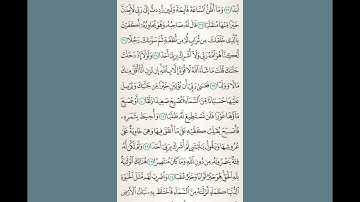 أَبَدًا ٣٥ وَمَا أَظُنُّ ٱلسَّاعَةَ قَآئِمَةً وَلَئِن رُّدِدتُّ إِلَىٰ رَبِّى لَأَجِدَنَّ
خَيْرًا مِّنْهَا مُنقَلَبًا ٣٦ قَالَ لَهُۥ صَاحِبُهُۥ وَهُوَ يُحَاوِرُهُۥٓ أَكَفَرْتَ
بِٱلَّذِى خَلَقَكَ مِن تُرَابٍ ثُمَّ مِن نُّطْفَةٍ ثُمَّ سَوَّىٰكَ رَجُلًا ٣٧
لَّٰكِنَّا۠ هُوَ ٱللَّهُ رَبِّى وَلَآ أُشْرِكُ بِرَبِّىٓ أَحَدًا ٣٨ وَلَوْلَآ إِذْ دَخَلْتَ
جَنَّتَكَ قُلْتَ مَا شَآءَ ٱللَّهُ لَا قُوَّةَ إِلَّا بِٱللَّهِ إِن تَرَنِ أَنَا۠ أَقَلَّ مِنكَ
مَالًا وَوَلَدًا ٣٩ فَعَسَىٰ رَبِّىٓ أَن يُؤْتِيَنِ خَيْرًا مِّن جَنَّتِكَ وَيُرْسِلَ
عَلَيْهَا حُسْبَانًا مِّنَ ٱلسَّمَآءِ فَتُصْبِحَ صَعِيدًا زَلَقًا ٤٠ أَوْ يُصْبِحَ
مَآؤُهَا غَوْرًا فَلَن تَسْتَطِيعَ لَهُۥ طَلَبًا ٤١ وَأُحِيطَ بِثَمَرِهِۦ
فَأَصْبَحَ يُقَلِّبُ كَفَّيْهِ عَلَىٰ مَآ أَنفَقَ فِيهَا وَهِىَ خَاوِيَةٌ عَلَىٰ
عُرُوشِهَا وَيَقُولُ يَٰلَيْتَنِى لَمْ أُشْرِكْ بِرَبِّىٓ أَحَدًا ٤٢ وَلَمْ تَكُن لَّهُۥ
فِئَةٌ يَنصُرُونَهُۥ مِن دُونِ ٱللَّهِ وَمَا كَانَ مُنتَصِرًا ٤٣ هُنَالِكَ ٱلْوَلَٰيَةُ
لِلَّهِ ٱلْحَقِّ هُوَ خَيْرٌ ثَوَابًا وَخَيْرٌ عُقْبًا ٤٤ وَٱضْرِبْ لَهُم مَّثَلَ ٱلْحَيَوٰةِ
ٱلدُّنْيَا كَمَآءٍ أَنزَلْنَٰهُ مِنَ ٱلسَّمَآءِ فَٱخْتَلَطَ بِهِۦ نَبَاتُ ٱلْأَرْضِ